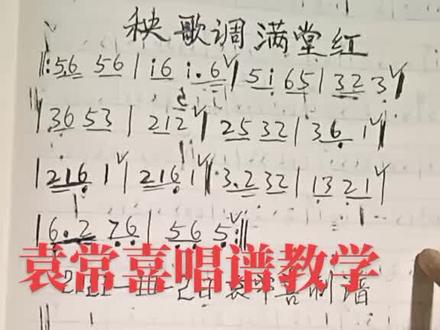 秧歌调满堂红
‖:56 56 | i6 i.6 | 5i 65 | 32 3 |
| 36 53 | 212 | 25 32 | 36 1 |
| 216 1 | 216 1 ‖: 3.2 32 | 13 21 |
| 6.2 76 | 56 5 :‖
袁常喜唱谱教学